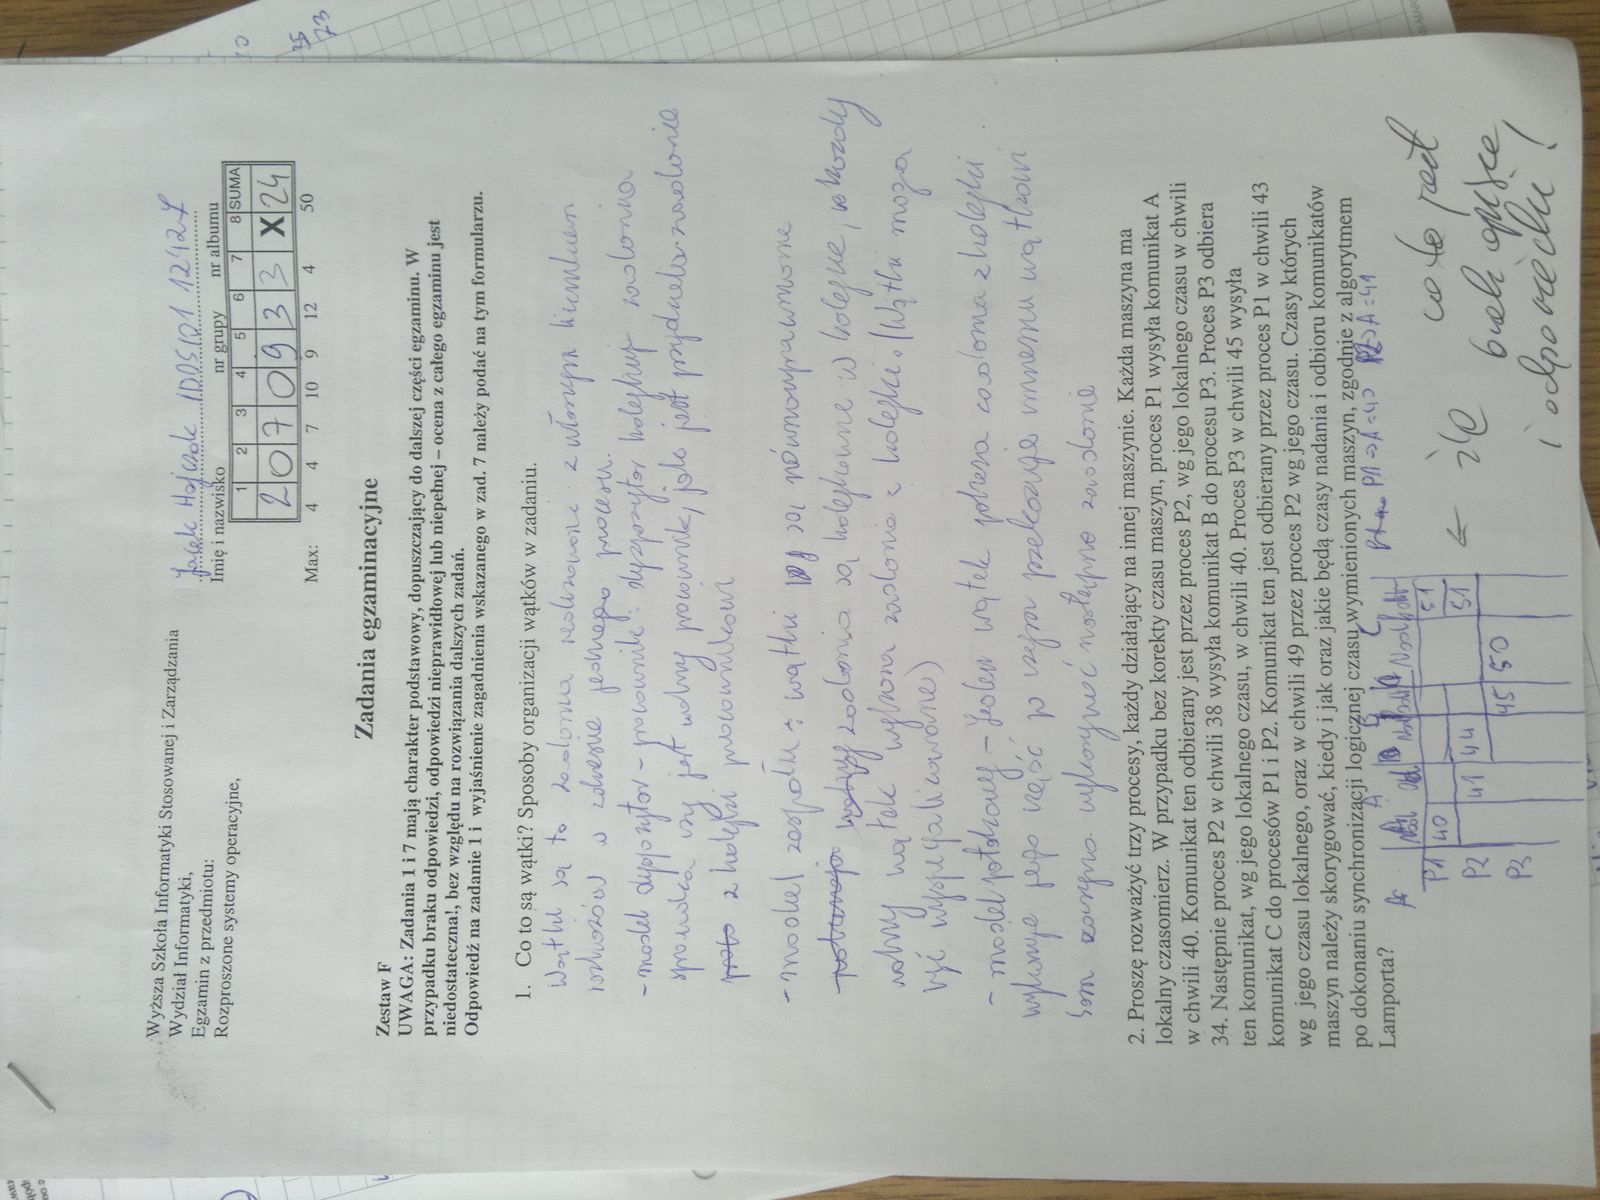 Wyższa Szkoła Informatyki Stosowanej i Zarządzania
Wydział Informatyki,
Egzamin z przedmiotu:
Rozproszone systemy operacyjne,
Jacek
Imię i nazwisko nr grupy nr albumu
1 2 3 4 5 6 7 8 SUMA
2 0 7 0 9 3 3 X 24
Max: 4 4 7 10 9 12 4 50
Zadania egzaminacyjne
Zestaw F
UWAGA: Zadania 1 i 7 mają charakter podstawowy, dopuszczający do dalszej części egzaminu. W
przypadku braku odpowiedzi, odpowiedzi nieprawidłowej lub niepełnej – ocena z całego egzaminu jest
niedostateczna!, bez względu na rozwiązania dalszych zadań.
Odpowiedź na zadanie 1 i wyjaśnienie zagadnienia wskazanego w zad. 7 należy podać na tym formularzu.
1. Co to są wątki? Sposoby organizacji wątków w zadaniu.
Wątki są to zadania realizowane z własnym licznikiem
rozkazów w zakresie jednego procesu.
- model dyspozytor - pracownik : dyspozytor kolejkuje zadania
sprawdza czy jest wolny pracownik, jak jest przydziela zadanie
z kolejki pracownikowi
- model zespołu : wątki są równouprawnione
zadania są kolejkowane w kolejce, każdy
wolny wątek zadania z kolejki. (Wątki mogą
być wyspecjalizowane)
- model potokowy - Jeden wątek pobiera zadania z kolejki
wykonuje jego część po czym przekazuje innemu wątkowi
sam zaczyna wykonywać następne zadanie
2. Proszę rozważyć trzy procesy, każdy działający na innej maszynie. Każda maszyna ma
lokalny czasomierz. W przypadku bez korekty czasu maszyn, proces P1 wysyła komunikat A
w chwili 40. Komunikat ten odbierany jest przez proces P2, wg jego lokalnego czasu w chwili
34. Następnie proces P2 w chwili 38 wysyła komunikat B do procesu P3. Proces P3 odbiera
ten komunikat, wg jego lokalnego czasu, w chwili 40. Proces P3 w chwili 45 wysyła
komunikat C do procesów P1 i P2. Komunikat ten jest odbierany przez proces P1 w chwili 43
wg jego czasu lokalnego, oraz w chwili 49 przez proces P2 wg jego czasu. Czasy których
maszyn należy skorygować, kiedy i jak oraz jakie będą czasy nadania i odbioru komunikatów
po dokonaniu synchronizacji logicznej czasu wymienionych maszyn, zgodnie z algorytmem
Lamporta?
P1 => A = 40 P2 => A = 41
A B C
P1 40 51
P2 41 44 51
P3 45 50
← źle
co to jest
brak opisu
i odpowiedzi !